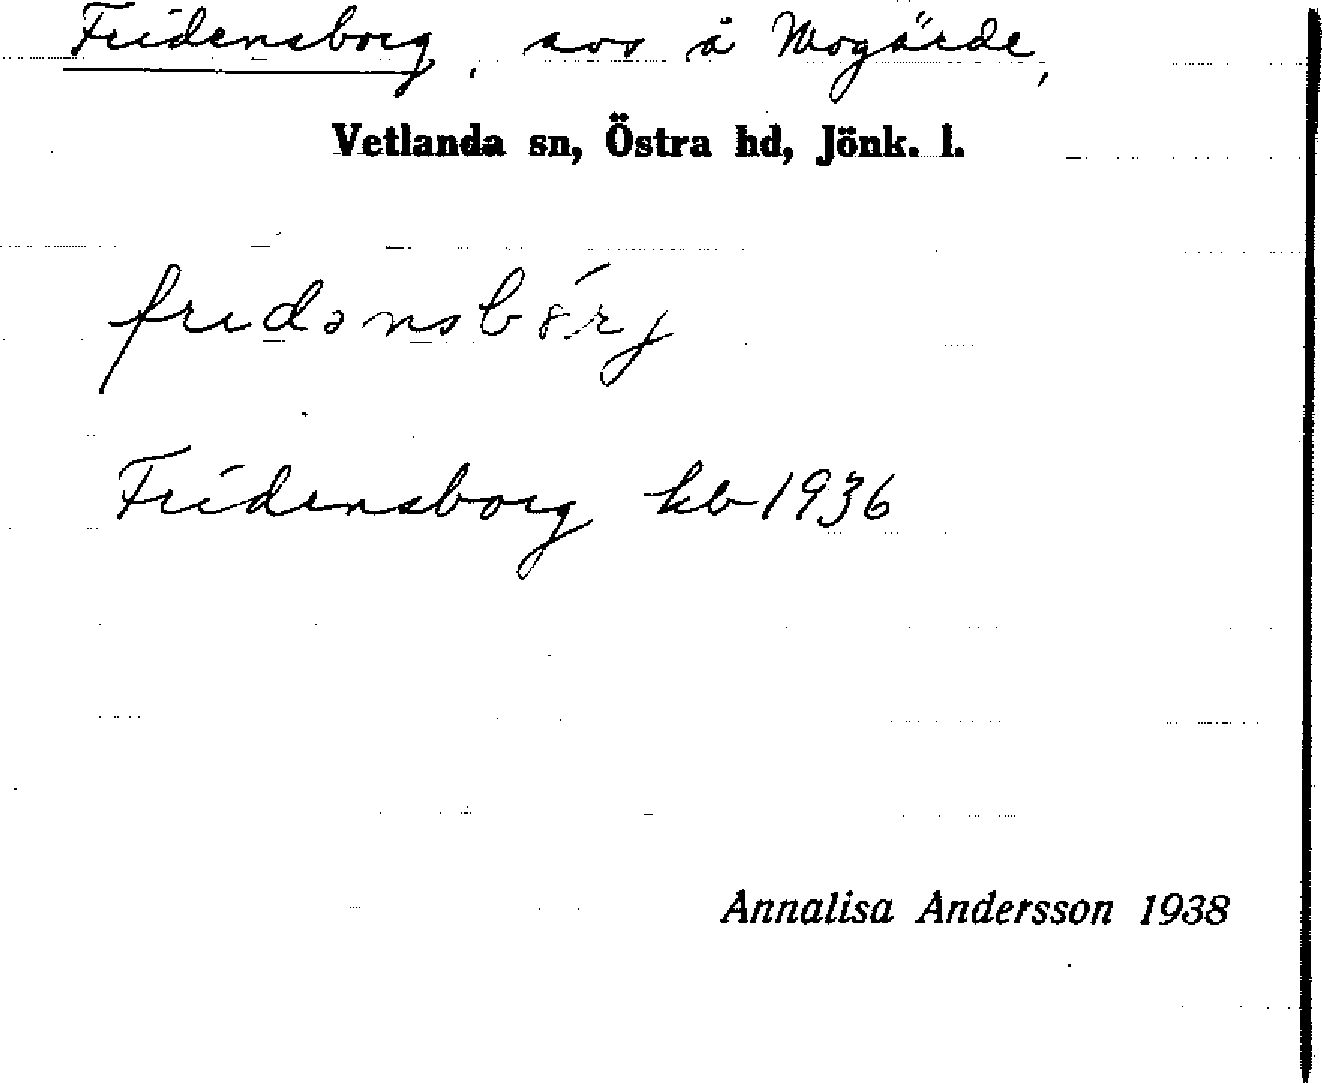 Fridensborg, avs å Mogärde,
Vetlanda sn, Östra hd, Jönk. l.
fridənsbórj
Fridensborg kb 1936
Annalisa Andersson 1938